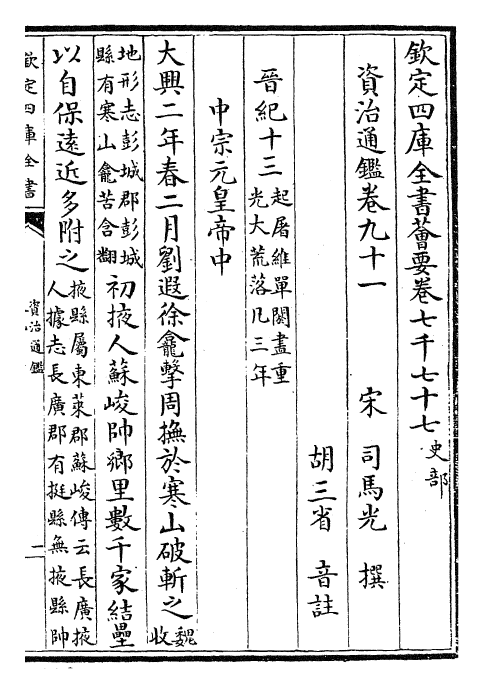 欽定四庫全書薈要卷七千七十七史部
資治通鑑卷九十一
宋司馬光撰
胡三省音註
晉紀十三起屠維單閼盡重
光大荒落凡三年
中宗元皇帝中
大興二年春二月劉遐徐龕擊周撫於寒山破斬之魏
收
地形志彭城郡彭城
縣有寒山龕苦含翻
初掖人蘇峻帥鄉里數千家結壘
以自保遠近多附之掖縣屬東萊郡蘇峻傳云長廣掖
人據志長廣郡有挺縣無掖縣帥
欽定四庫全書
資治通鑑
一